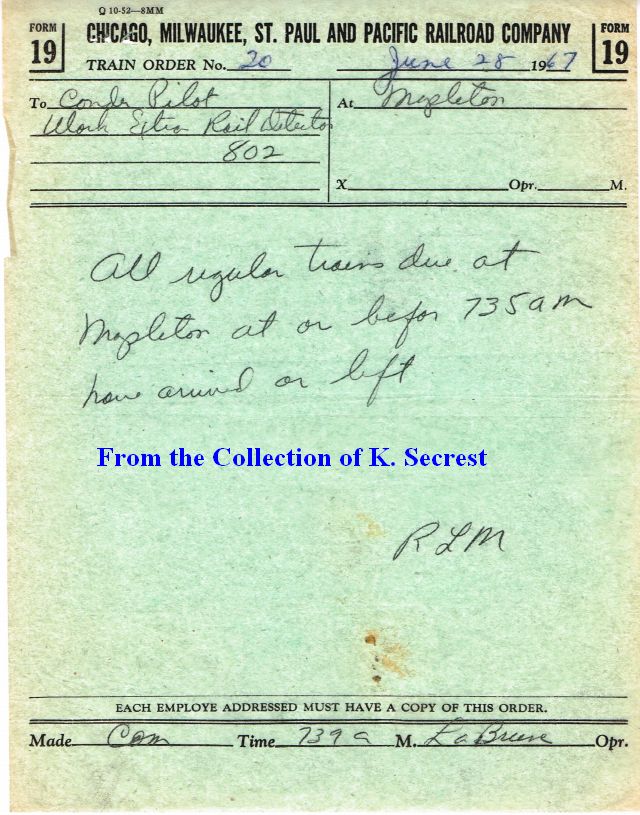 Q 10-52—8MM
FORM 19
CHICAGO, MILWAUKEE, ST. PAUL AND PACIFIC RAILROAD COMPANY
FORM 19
TRAIN ORDER No. 20 June 28 1967
To Condr Pilot
Work Extra Rail Detector
802
At Mapleton
X Opr. M.
All regular trains due at
Mapleton at or befor 735am
have arrived or left
From the Collection of K. Secrest
RLM
EACH EMPLOYE ADDRESSED MUST HAVE A COPY OF THIS ORDER.
Made Com Time 739a M. Opr.